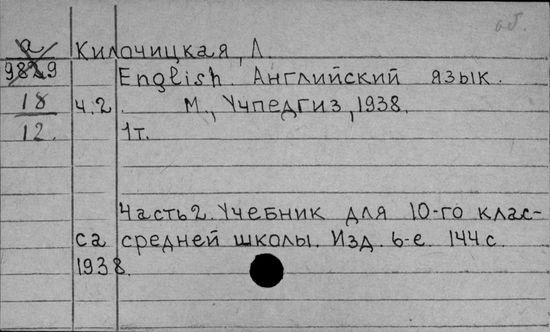 а Килочицкая, Л.
9829 English. Английский язык.
18 ч.2 М., Учпедгиз, 1938.
12. 1т.
Часть 2. Учебник для 10-го клас-
са средней школы. Изд. 6-е. 144 с.
1938.